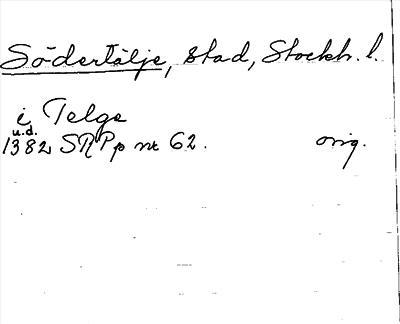 Södertälje, stad, Stockh. l.
i Telge
u.d.
1382 SRPp nr 62. orig.